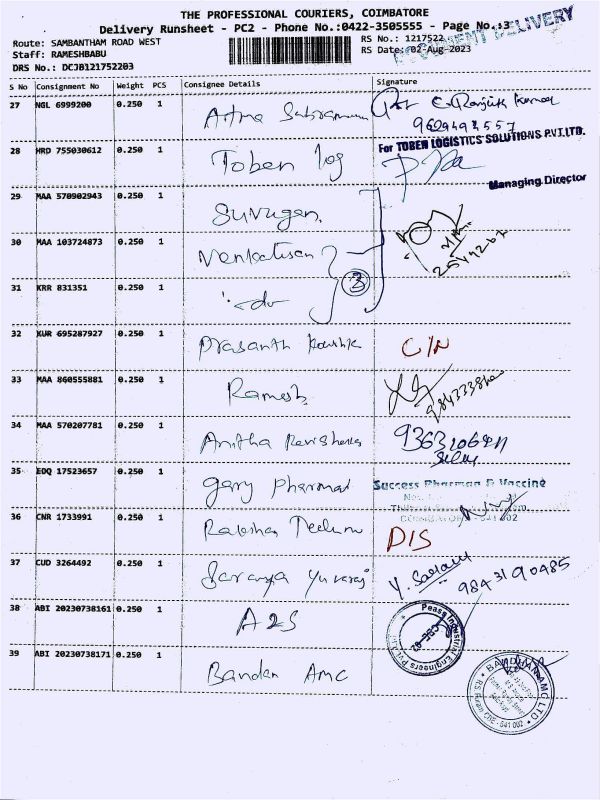 THE PROFESSIONAL COURIERS, COIMBATORE
Delivery Runsheet - PC2 - Phone No.:0422-3505555 - Page No.:3
DOCUMENT DELIVERY
Route: SAMBANTHAM ROAD WEST
RS No.: 1217522
Staff: RAMESHBABU
RS Date: 02-Aug-2023
DRS No.: DCJB121752203
S No Consignment No Weight PCS Consignee Details Signature
27 NGL 6999200 0.250 1
9629493557
28 HRD 755030612 0.250 1 Toben log
For TOBEN LOGISTICS SOLUTIONS PVT.LTD.
Managing Director
29 MAA 570902943 0.250 1 Suvugan
30 MAA 103724873 0.250 1 Venkatisan
31 KRR 831351 1 -do-
3
32 KUR 695287927 0.250 1 Prasanth Koushik C/N
33 MAA 860555881 0.250 1 Ramesh
34 MAA 570207781 0.250 1 Anitha
35 EDQ 17523657 0.250 1 gary pharma
Success Pharma & Vaccine
COIMBATORE - 641 002
36 CNR 1733991 0.250 1 D/S
37 CUD 3264492 0.250 1 Saranya Yuvaraj Y. Saranya
9843190485
38 ABI 20230738161 0.250 1 A2S
Peass Industrial Engineers Pvt Ltd
CBE-02
39 ABI 20230738171 0.250 1 Bandan Amc
BANDHAN AMC LTD
RS Puram, CBE - 641 002